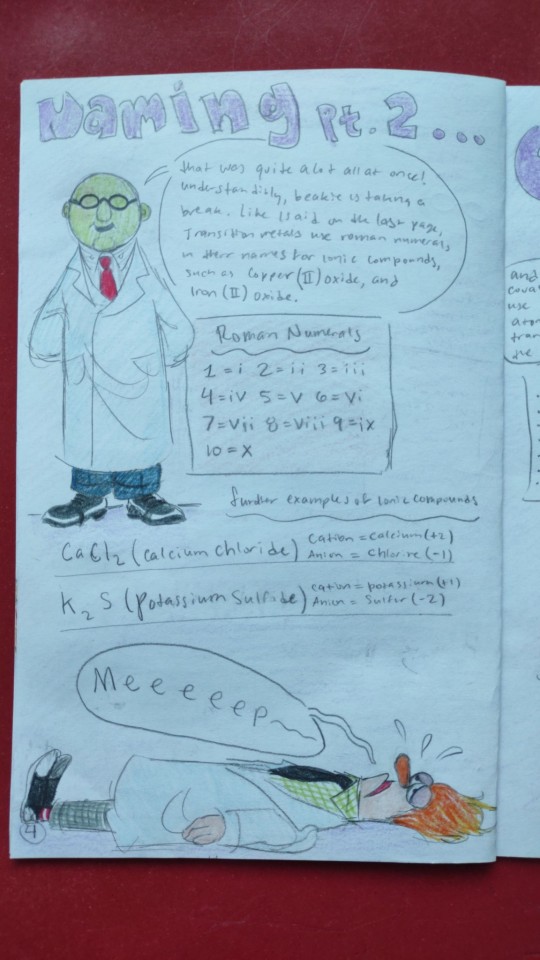 Naming Pt. 2...
that was quite a lot all at once!
understandibly, beakie is taking a
break. Like I said on the last page,
Transition metals use roman numerals
in their names for ionic compounds,
such as Copper (II) oxide, and
Iron (II) oxide.
Roman Numerals
1 = i 2 = ii 3 = iii
4 = iv 5 = v 6 = vi
7 = vii 8 = viii 9 = ix
10 = x
further examples of ionic compounds
CaCl2 (calcium chloride) Cation = calcium (+2)
Anion = Chlorine (-1)
K2S (potassium sulfide) cation = potassium (+1)
Anion = Sulfur (-2)
Meeeeep
4
and
coval
use
atom
tran
the